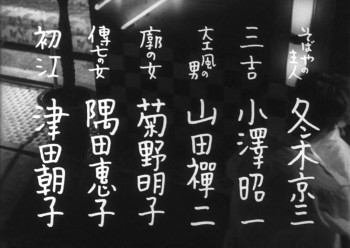 そばやの主人 冬木京三
三吉 小澤昭一
大工風の男 山田禪二
廓の女 菊野明子
傳七の女 隅田恵子
初江 津田朝子